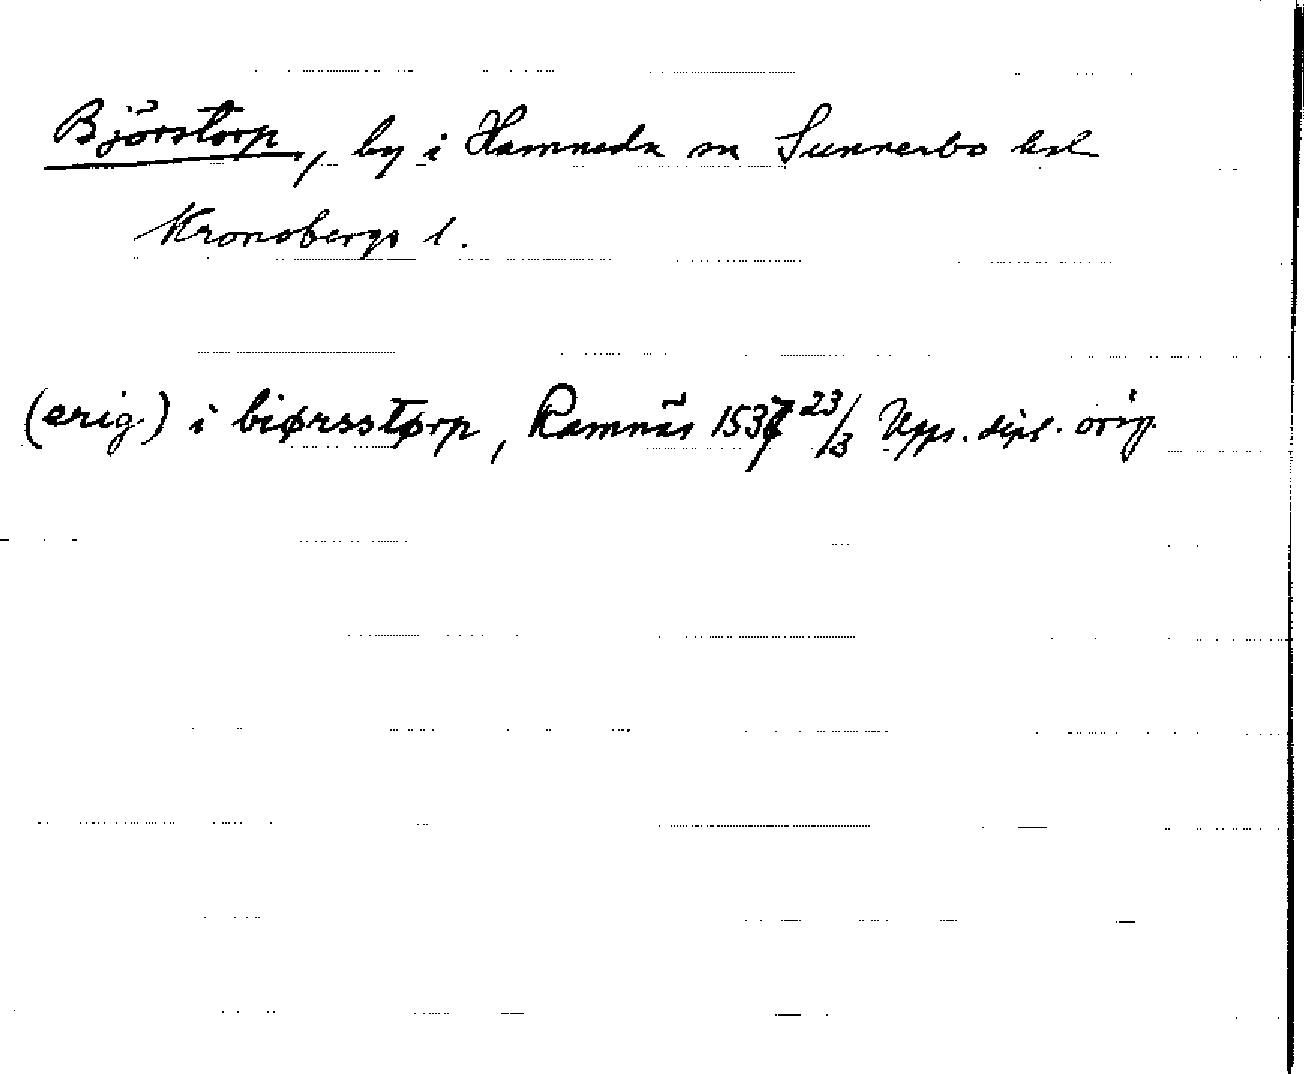 Björstorp, by i Hamneda sn Sunnerbo hd
Kronobergs l.
(erig.) i biørsstørp, Ramnäs 1537 23/3 Upps. dipl. orig.